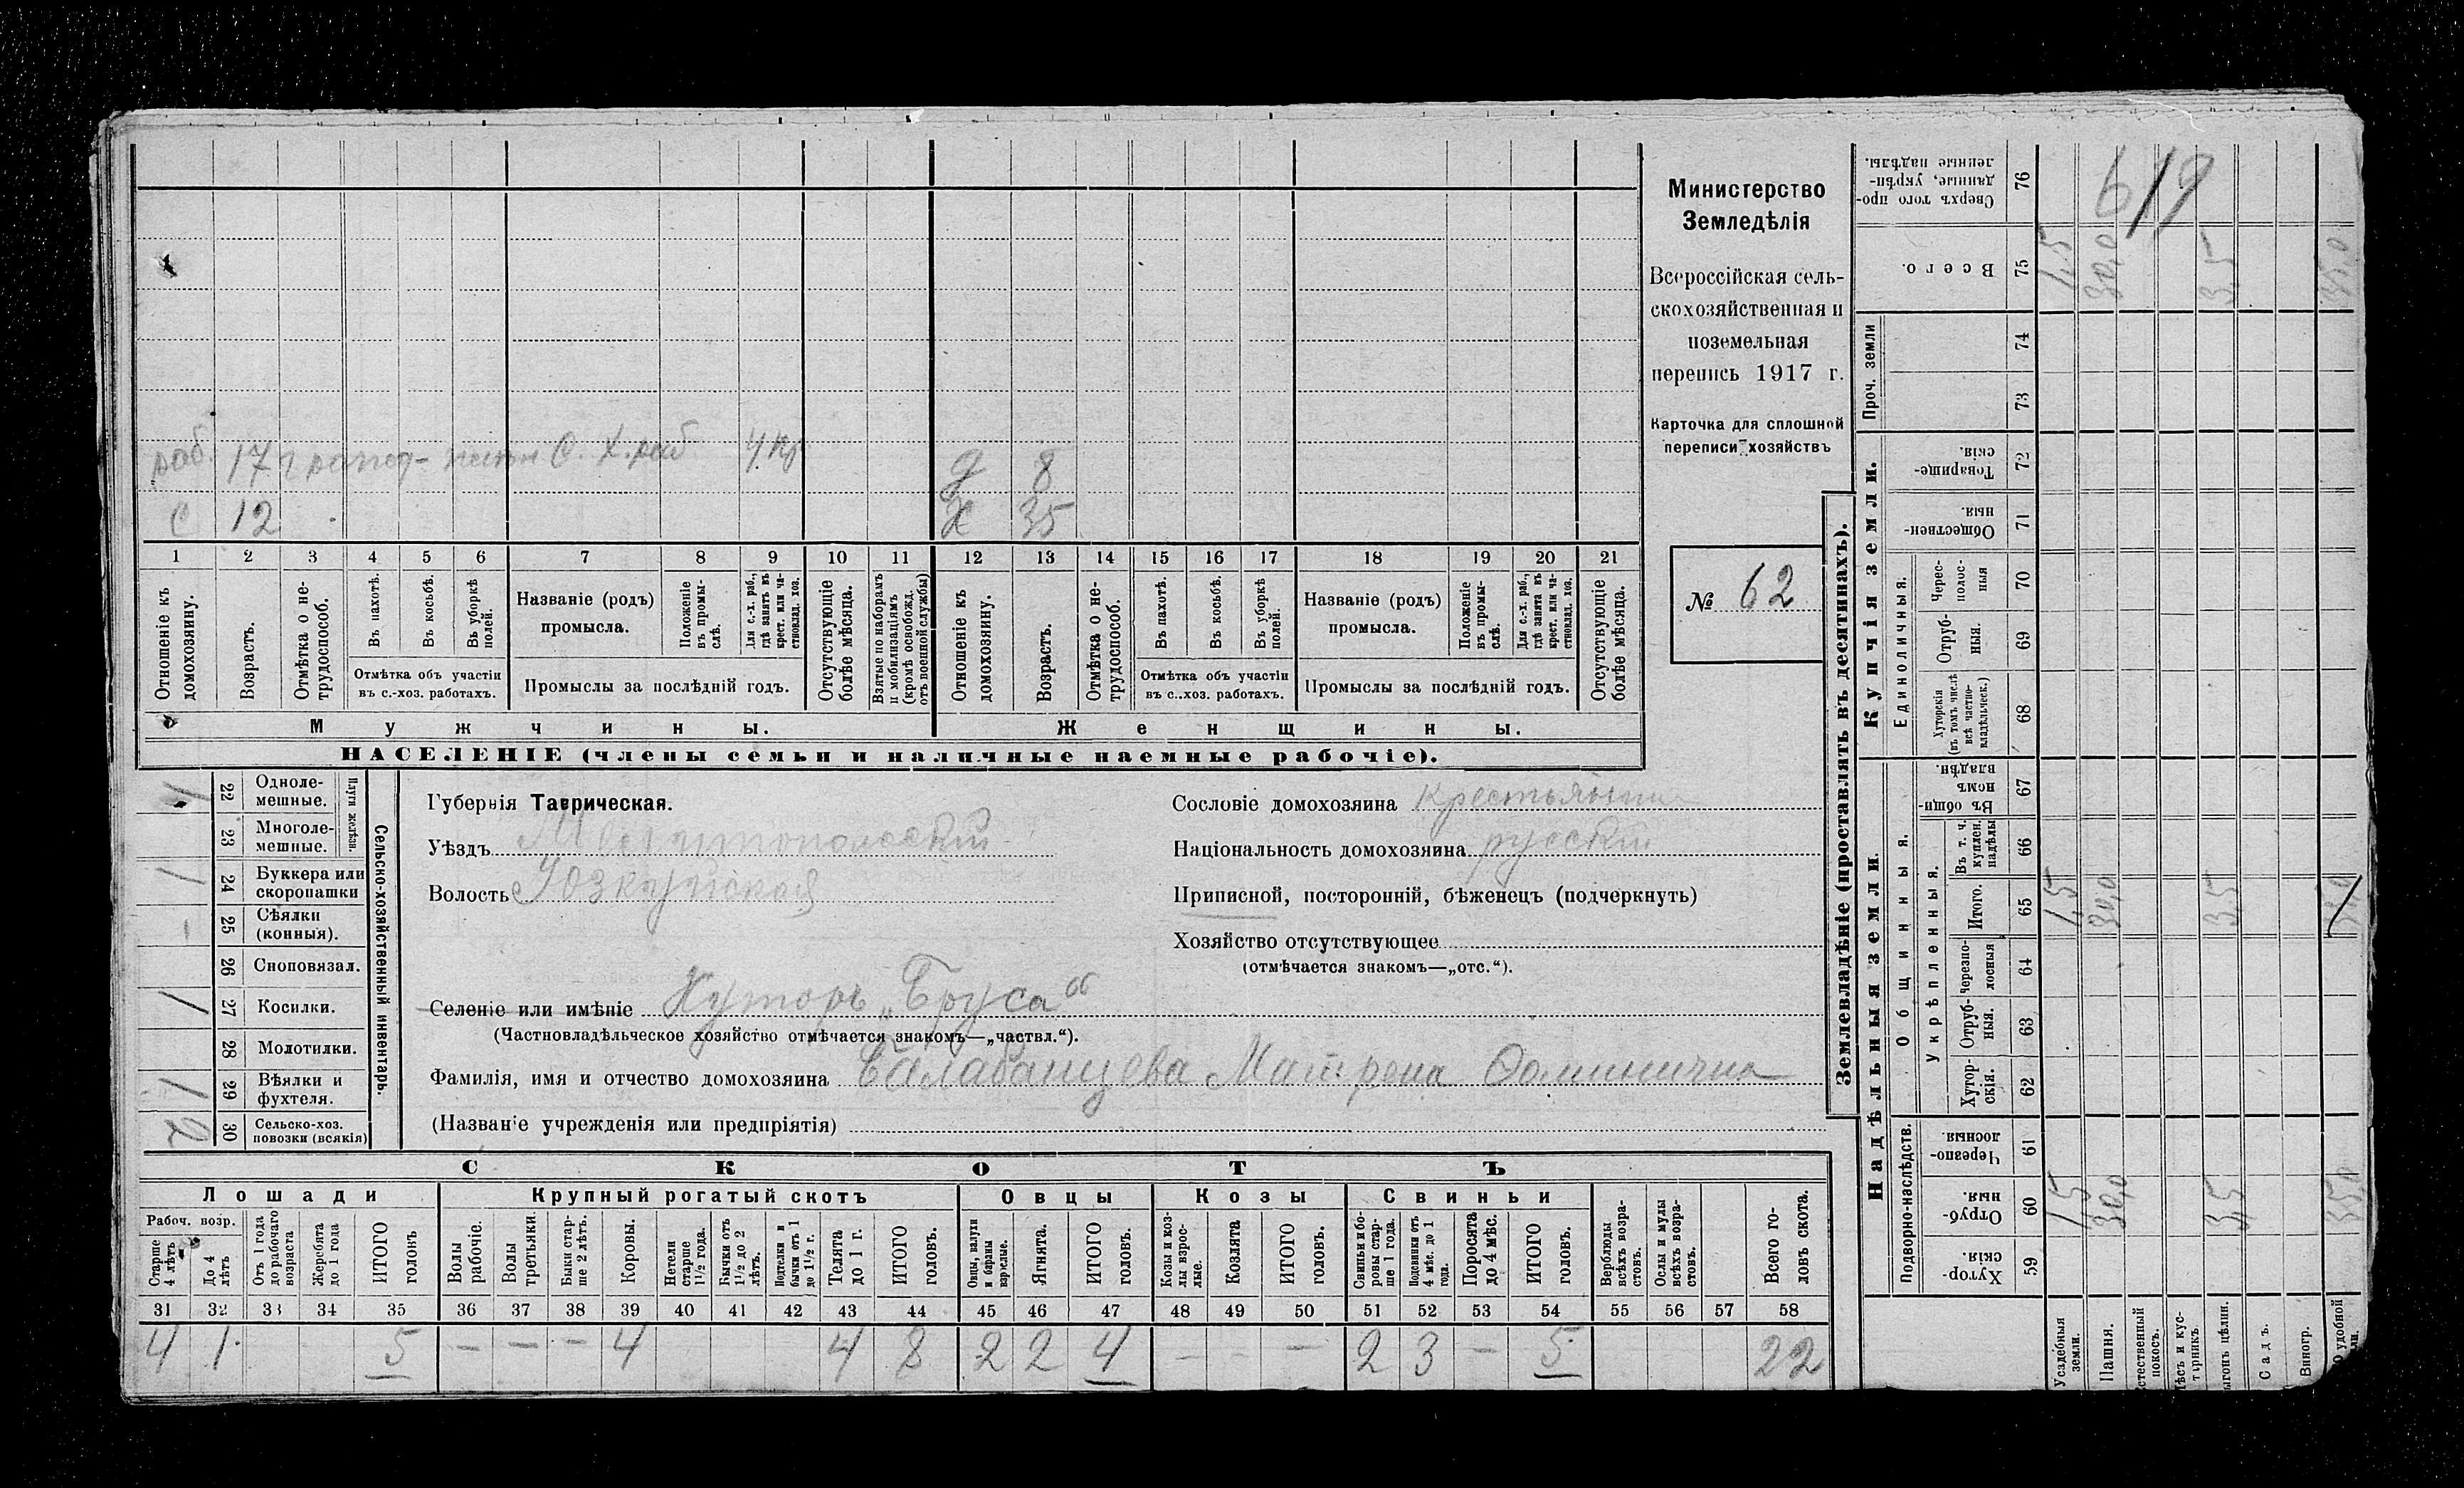 Министерство
Земледѣлія
Всероссійская сель-
скохозяйственная и
поземельная
перепись 1917 г.
Карточка для сплошной
переписи хозяйствъ
№ 62
раб. 17 С. Х. раб
д 8
С 12
Х 35
1 2 3 4 5 6 7 8 9 10 11 12 13 14 15 16 17 18 19 20 21
Отношеніе къ домохозяину.
Возрастъ.
Отмѣтка о не-трудоспособ.
Въ пахотѣ.
Въ косьбѣ.
Въ уборкѣ полей.
Отмѣтка объ участіи
въ с.-хоз. работахъ.
Названіе (родъ)
промысла.
Положеніе въ промы-слѣ.
Для с.-х. раб., гдѣ занятъ въ крест. или ча-стновлад. хоз.
Промыслы за послѣдній годъ.
Отсутствующіе болѣе мѣсяца.
Взятые по наборамъ и мобилизаціямъ (кромѣ освобожд. отъ военной службы)
Отношеніе къ домохозяину.
Возрастъ.
Отмѣтка о не-трудоспособ.
Въ пахотѣ.
Въ косьбѣ.
Въ уборкѣ полей.
Отмѣтка объ участіи
въ с..хоз. работахъ.
Названіе (родъ)
промысла.
Положеніе въ промы-слѣ.
Для с.-х. раб., гдѣ занята въ крест. или ча-стновлад. хоз.
Промыслы за послѣдній годъ.
Отсутствующіе болѣе мѣсяца.
Мужчины.
Женщины.
НАСЕЛЕНІЕ (члены семьи и наличные наемные рабочіе).
Сельско-хозяйственный инвентарь.
Плуги желѣзн.
22 Одноле-мешные.
23 Многоле-мешные.
1 24 Буккера или скоропашки
25 Сѣялки (конныя).
26 Сноповязал.
1 27 Косилки.
28 Молотилки.
1 29 Вѣялки и фухтеля.
2 30 Сельско-хоз. повозки (всякія)
Губернія Таврическая.
Уѣздъ Мелитопольскій
Волость Юзкуйская
Селеніе или имѣніе Хуторъ „Бруса“
(Частновладѣльческое хозяйство отмѣчается знакомъ—„частвл.“).
Фамилія, имя и отчество домохозяина Балабанцева Матрена
(Названіе учрежденія или предпріятія)
Сословіе домохозяина крестьянин
Національность домохозяина русскій
Приписной, посторонній, бѣженецъ (подчеркнуть)
Хозяйство отсутствующее
(отмѣчается знакомъ—„отс.“).
СКОТЪ
Лошади
Крупный рогатый скотъ
Овцы
Козы
Свиньи
Рабоч. возр.
Старше 4 лѣтъ
До 4 лѣтъ
Отъ 1 года до рабочаго возраста
Жеребята до 1 года
ИТОГО головъ
Волы рабочіе.
Волы третьяки.
Быки стар-ше 2 лѣтъ.
Коровы.
Нетели старше 1½ года.
Бычки отъ 1½ до 2 лѣтъ.
Подтелки и бычки отъ 1 до 1½ г.
Телята до 1 г.
ИТОГО головъ.
Овцы, валухи и бараны взрослые.
Ягнята.
ИТОГО головъ.
Козы и коз-лы взрос-лые.
Козлята
ИТОГО головъ.
Свиньи и бо-ровы стар-ше 1 года.
Подсвинки отъ 4 мѣс. до 1 года.
Поросята до 4 мѣс.
ИТОГО головъ.
Верблюды всѣхъ возра-стовъ.
Ослы и мулы всѣхъ возра-стовъ.
Всего го-ловъ скота.
31 32 33 34 35 36 37 38 39 40 41 42 43 44 45 46 47 48 49 50 51 52 53 54 55 56 57 58
4 1 5 — — — 4 4 8 2 2 4 — - — 2 3 — 5 22
Землевладѣніе (проставлять въ десятинахъ).
Купчія земли.
Надѣльныя земли.
Сверхъ того про-данные, укрѣп-ленные надѣлы. 76
619
Всего. 75 1,5 30,0 3,5 35,0
Проч. земли
74
73
Товарище-скія. 72
Обществен-ныя. 71
Единоличныя.
Черес-полос-ныя 70
Отруб-ныя. 69
Хуторскія (въ томъ числѣ всѣ частно-владѣльческ.) 68
Общинныя.
Въ общи-номъ владѣн. 67
Укрѣпленныя.
Въ т. ч. куплен. надѣлы 66
Итого. 65 1,5 30,0 3,5
Черезпо-лосныя 64
Отруб-ныя. 63
Хутор-скія. 62
Подворно-наслѣдств.
Черезпо-лосныя. 61
Отруб-ныя. 60 1,5 30,0 3,5 35,0
Хутор-скія. 59
Усадебныя земли.
Пашня.
Садъ.
Виногр.